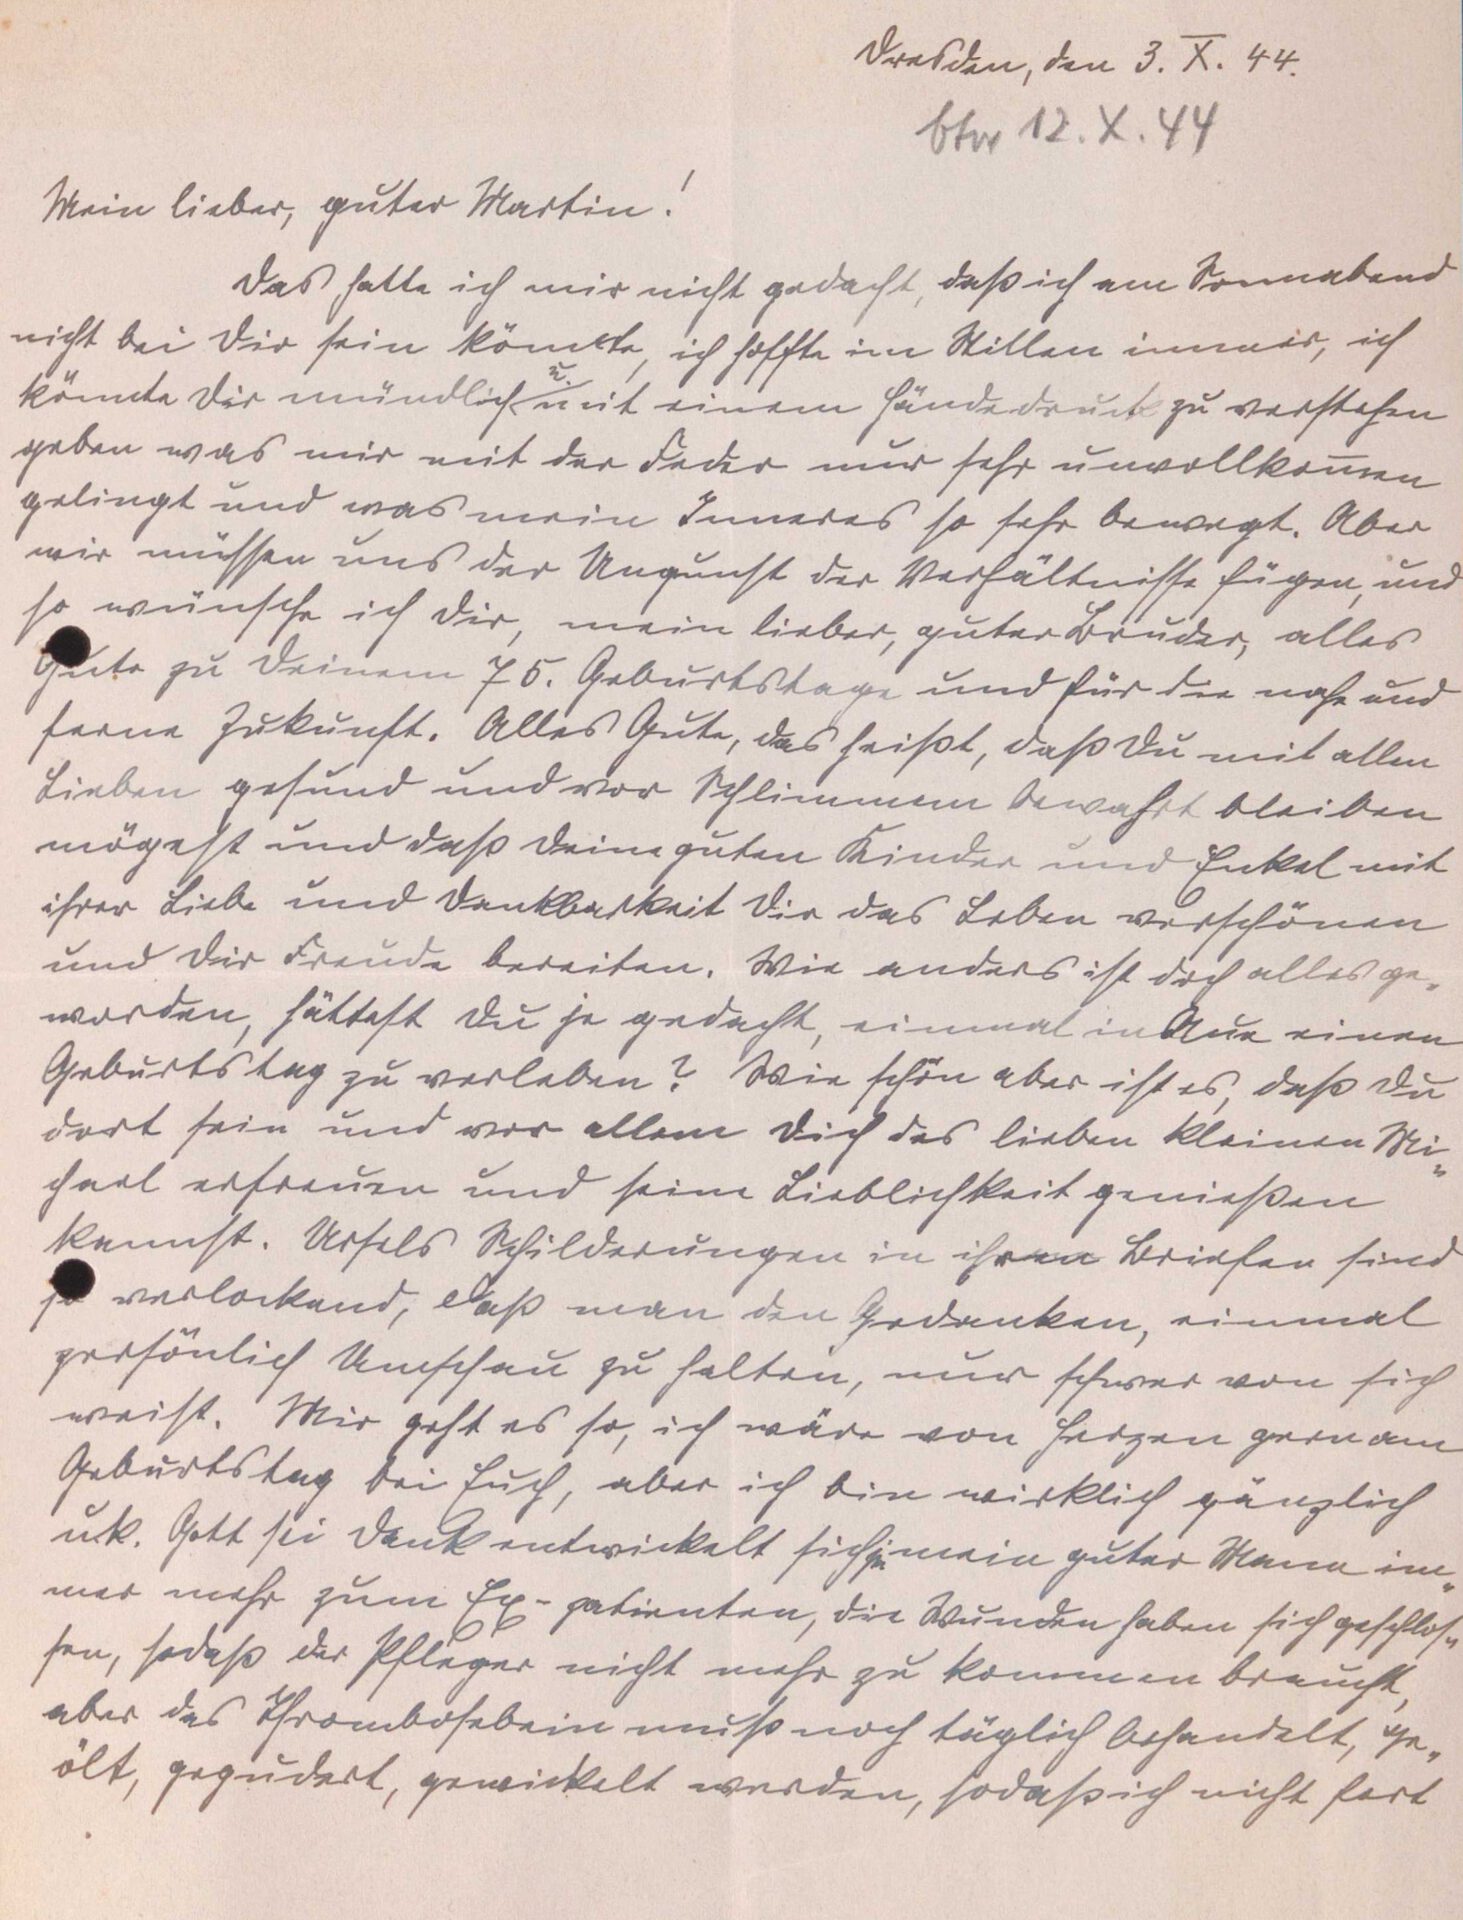 Dresden, den 3. X. 44.
btw 12. X. 44
Mein lieber, guter Martin!
Das hatte ich mir nicht gedacht, daß ich am Sonnabend
nicht bei Dir sein könnte, ich hoffte im Stillen immer, ich
könnte Dir mündlich u. mit einem Händedruck zu verstehen
geben was mir mit der Feder nur sehr unvollkom̄en
gelingt und was mein Inneres so sehr bewegt. Aber
wir müssen uns der Ungunst der Verhältnisse fügen, und
so wünsche ich Dir, mein lieber, guter Bruder, alles
Gute zu Deinem 75. Geburtstage und für die nahe und
ferne Zukunft. Alles Gute, das heißt, daß Du mit allen
Lieben gesund und vor Schlimmem bewahrt bleiben
mögest und daß Deine guten Kinder und Enkel mit
ihrer Liebe und Dankbarkeit Dir das Leben verschönen
und Dir Freude bereiten. Wie anders ist doch alles ge-
worden, hättest Du je gedacht, einmal in Aue einen
Geburtstag zu verleben? Wie schön aber ist es, daß Du
dort sein und vor allem Dich des lieben kleinen Mi-
chael erfreuen und seine Lieblichkeit genießen
kannst. Ursels Schilderungen in ihren Briefen sind
so verlockend, daß man den Gedanken, einmal
persönlich Umschau zu halten, nur schwer von sich
weist. Mir geht es so, ich wäre von Herzen gern am
Geburtstag bei Euch, aber ich bin wirklich gänzlich
u.k. Gott sei Dank entwickelt sich ja mein guter Mann im-
mer mehr zum Ex-patienten, die Wunden haben sich geschlos-
sen, sodaß der Pfleger nicht mehr zu kommen braucht,
aber das Thrombosebein muß noch täglich behandelt, ge-
ölt, gepudert, gewickelt werden, sodaß ich nicht fort